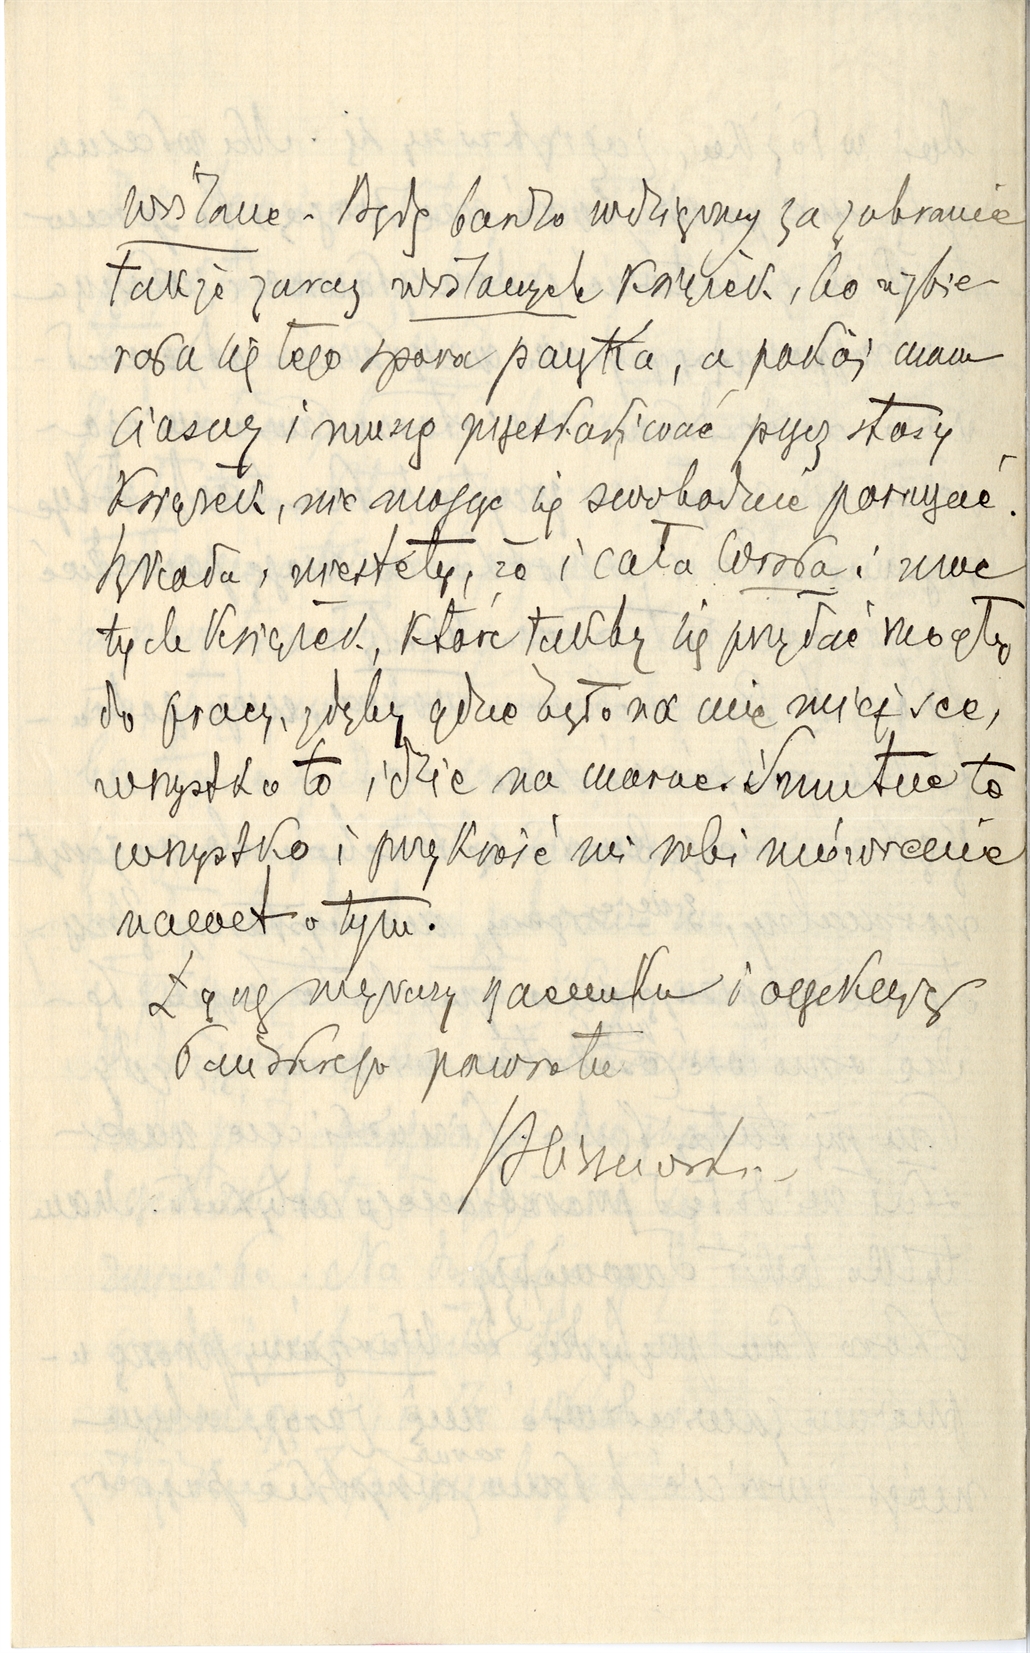 wisłane. Będę bardzo wdzięczny za zabranie
także zaraz wisłanych książek, bo uzbie-
rała się tego spora paczka, a pokój mam
ciasny i muszę przeskakiwać przez stosy
książek, nie mogąc się swobodnie poruszać.
Szkoda, niestety, że i cała Wisła i inne
tych książek, które takby się przydać mogły
do pracy, gdyby gdzie było na nie miejsce,
wszystko to idzie na marne. Smutne to
wszystko i przykrość mi robi mówienie
nawet o tym.
Łączę wyrazy szacunku i oczekuję
Pańskiego powrotu